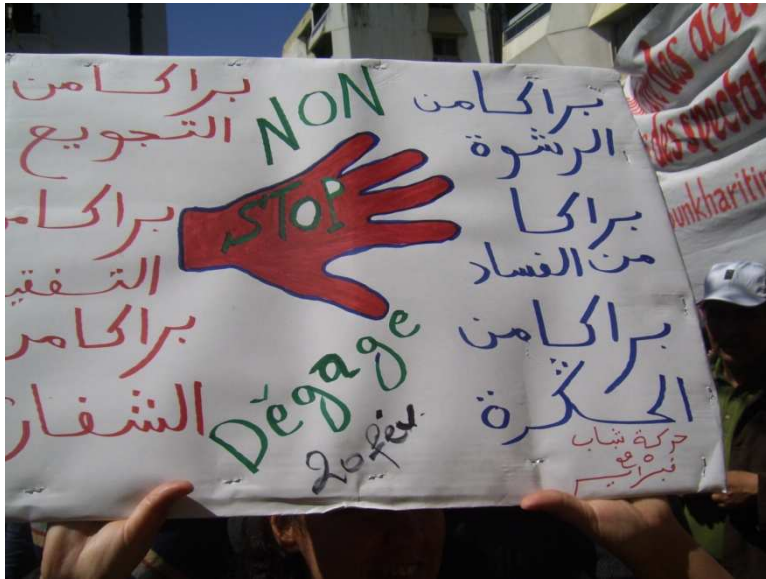 براكا من
الرشوة
براكا
من الفساد
براكا من
الحڭرة
حركة شباب
20 فبراير
NON
STOP
Dégage
20 fév.
براكا من
التجويع
براكا من
التفقير
براكا من
الشفار
des acte
des spectat
ounkharitin